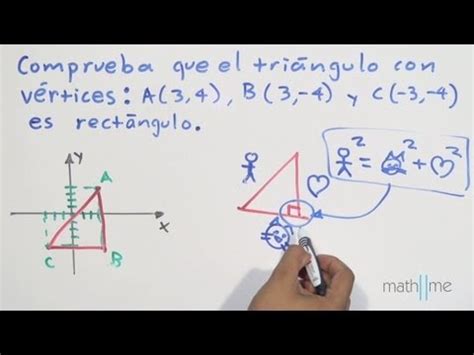 Comprueba que el triángulo con
vértices: A(3,4), B(3,-4) y C(-3,-4)
es rectángulo.
y
A
x
C
B
2 = 2 + 2
math||me